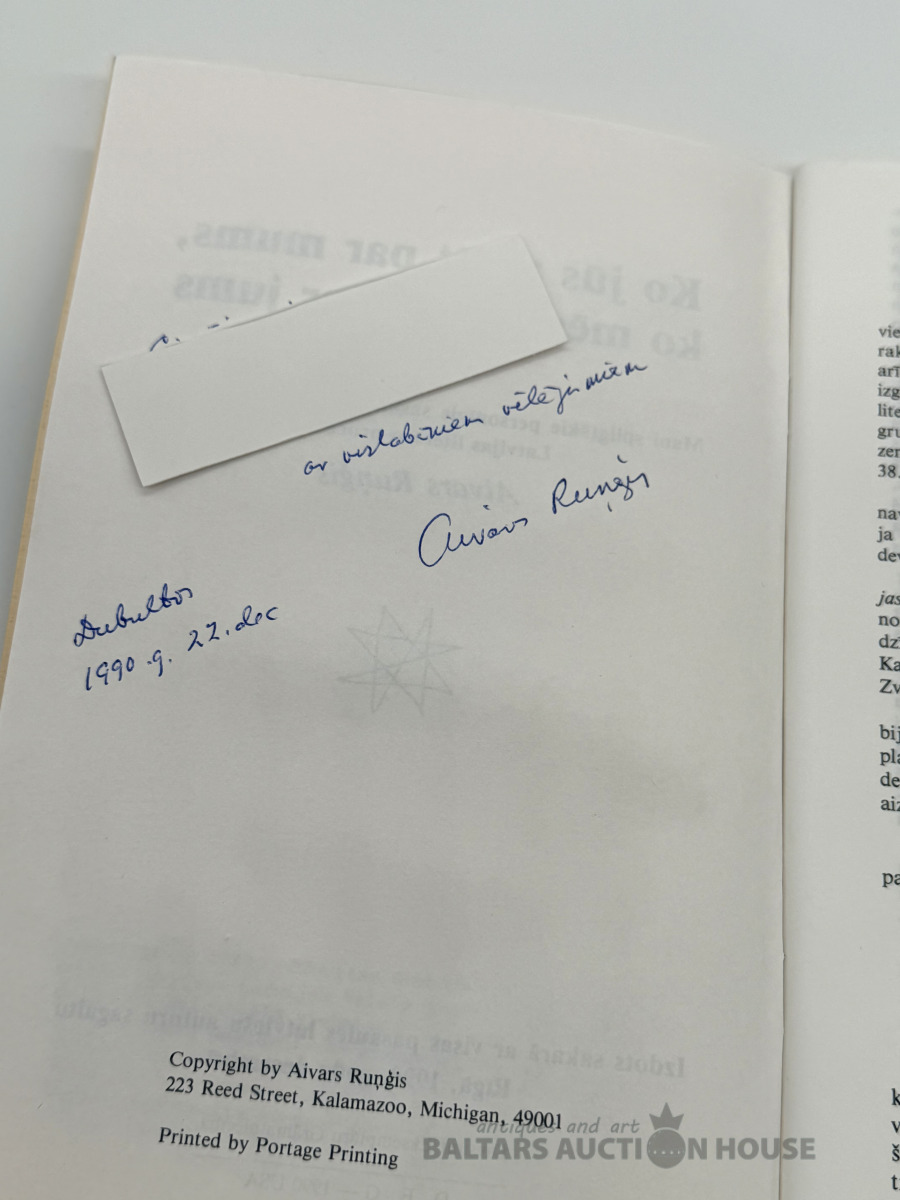 ar vislabākiem vēlējumiem
Aivars Ruņģis
Dubultos
1990.g. 22.dec
Copyright by Aivars Ruņģis
223 Reed Street, Kalamazoo, Michigan, 49001
Printed by Portage Printing
antiques and art
BALTARS AUCTION HOUSE
Ko jūs par mums,
ko mē jums
Aivars Ruņģis
vie
rak
arī
izg
lite
gru
zer
38.
nav
ja
dev
jas
no
dzī
Ka
Zv
bij
pla
de
aiz
pa
k
v
š
ti